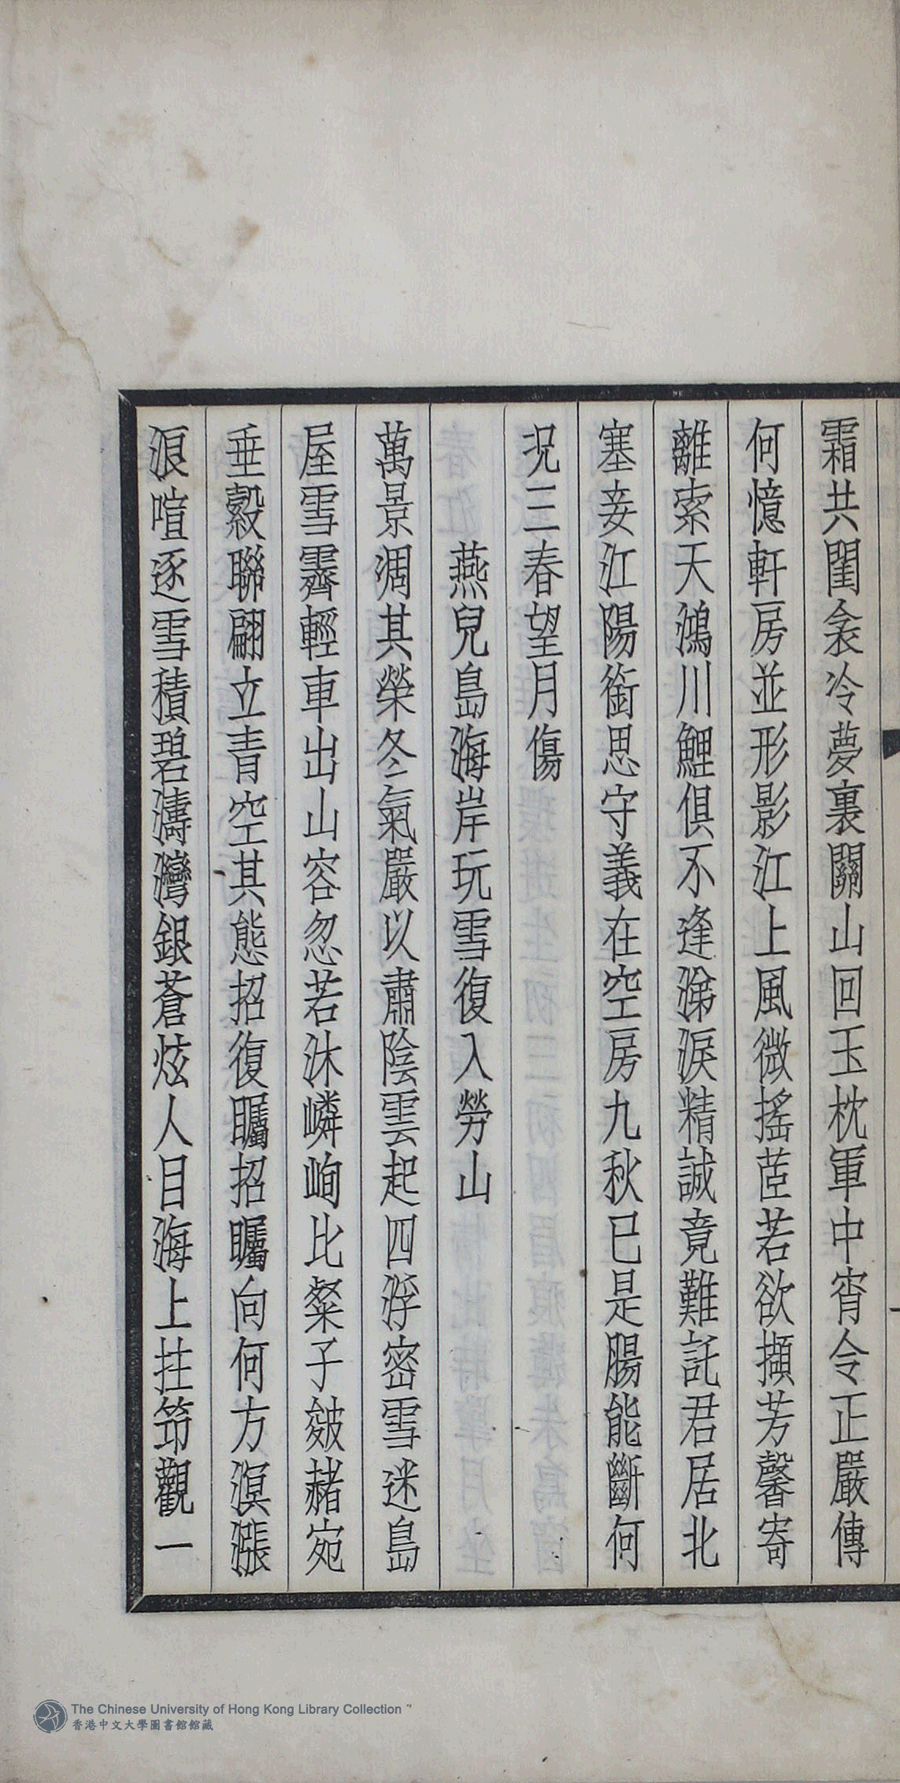 霜共閨衾冷夢裏關山回玉枕軍中宵令正嚴傳
何憶軒房並形影江上風微搖茝若欲擷芳馨寄
離索天鴻川鯉俱不逢涕淚精誠竟難託君居北
塞妾江陽銜思守義在空房九秋已是腸能斷何
況三春望月傷
燕兒島海岸玩雪復入勞山
萬景凋其榮冬氣嚴以肅陰雲起四浮密雪迷島
屋雪霽輕車出山容忽若沐嶙峋比粲子皴赭宛
垂縠聯翩立青空其態招復矚招矚向何方溟漲
浪喧逐雪積碧濤灣銀蒼炫人目海上拄笻觀一
The Chinese University of Hong Kong Library Collection
香港中文大學圖書館館藏